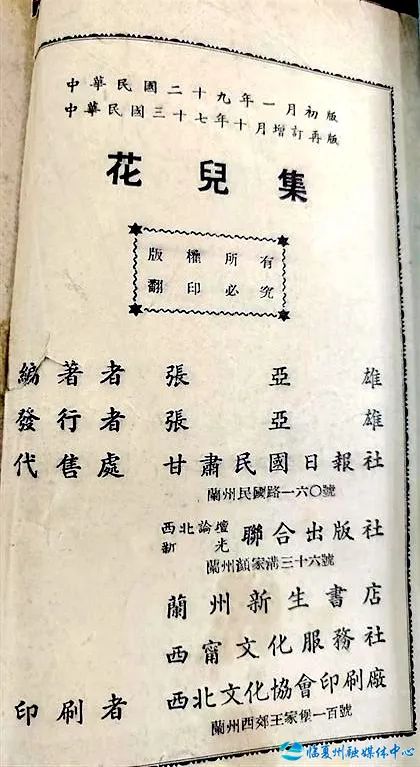 中華民國二十九年一月初版
中華民國三十七年十月增訂再版
花兒集
版權所有
翻印必究
編著者 張亞雄
發行者 張亞雄
代售處 甘肅民國日報社
蘭州民國路一六〇號
西北論壇
新光 聯合出版社
蘭州顏家溝三十六號
蘭州新生書店
西甯文化服務社
印刷者 西北文化協會印刷廠
蘭州西郊王家堡一百號
臨夏州融媒体中心